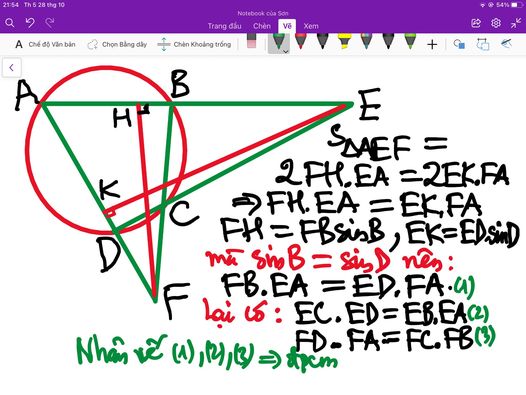 21:54 Th 5 28 thg 10
54%
Notebook của Sơn
Trang đầu Chèn Vẽ Xem
A Chế độ Văn bản Chọn Bằng dây Chèn Khoảng trống
A B E
H
K
D C
F
S△AEF =
2FH.EA = 2EK.FA
⇒ FH.EA = EK.FA
FH = FBsinB, EK=EDsinD
mà sinB = sinD nên:
FB.EA = ED.FA.(1)
lại có: EC.ED = EB.EA(2)
FD.FA = FC.FB(3)
Nhân vế (1), (2), (3) ⇒ đpcm